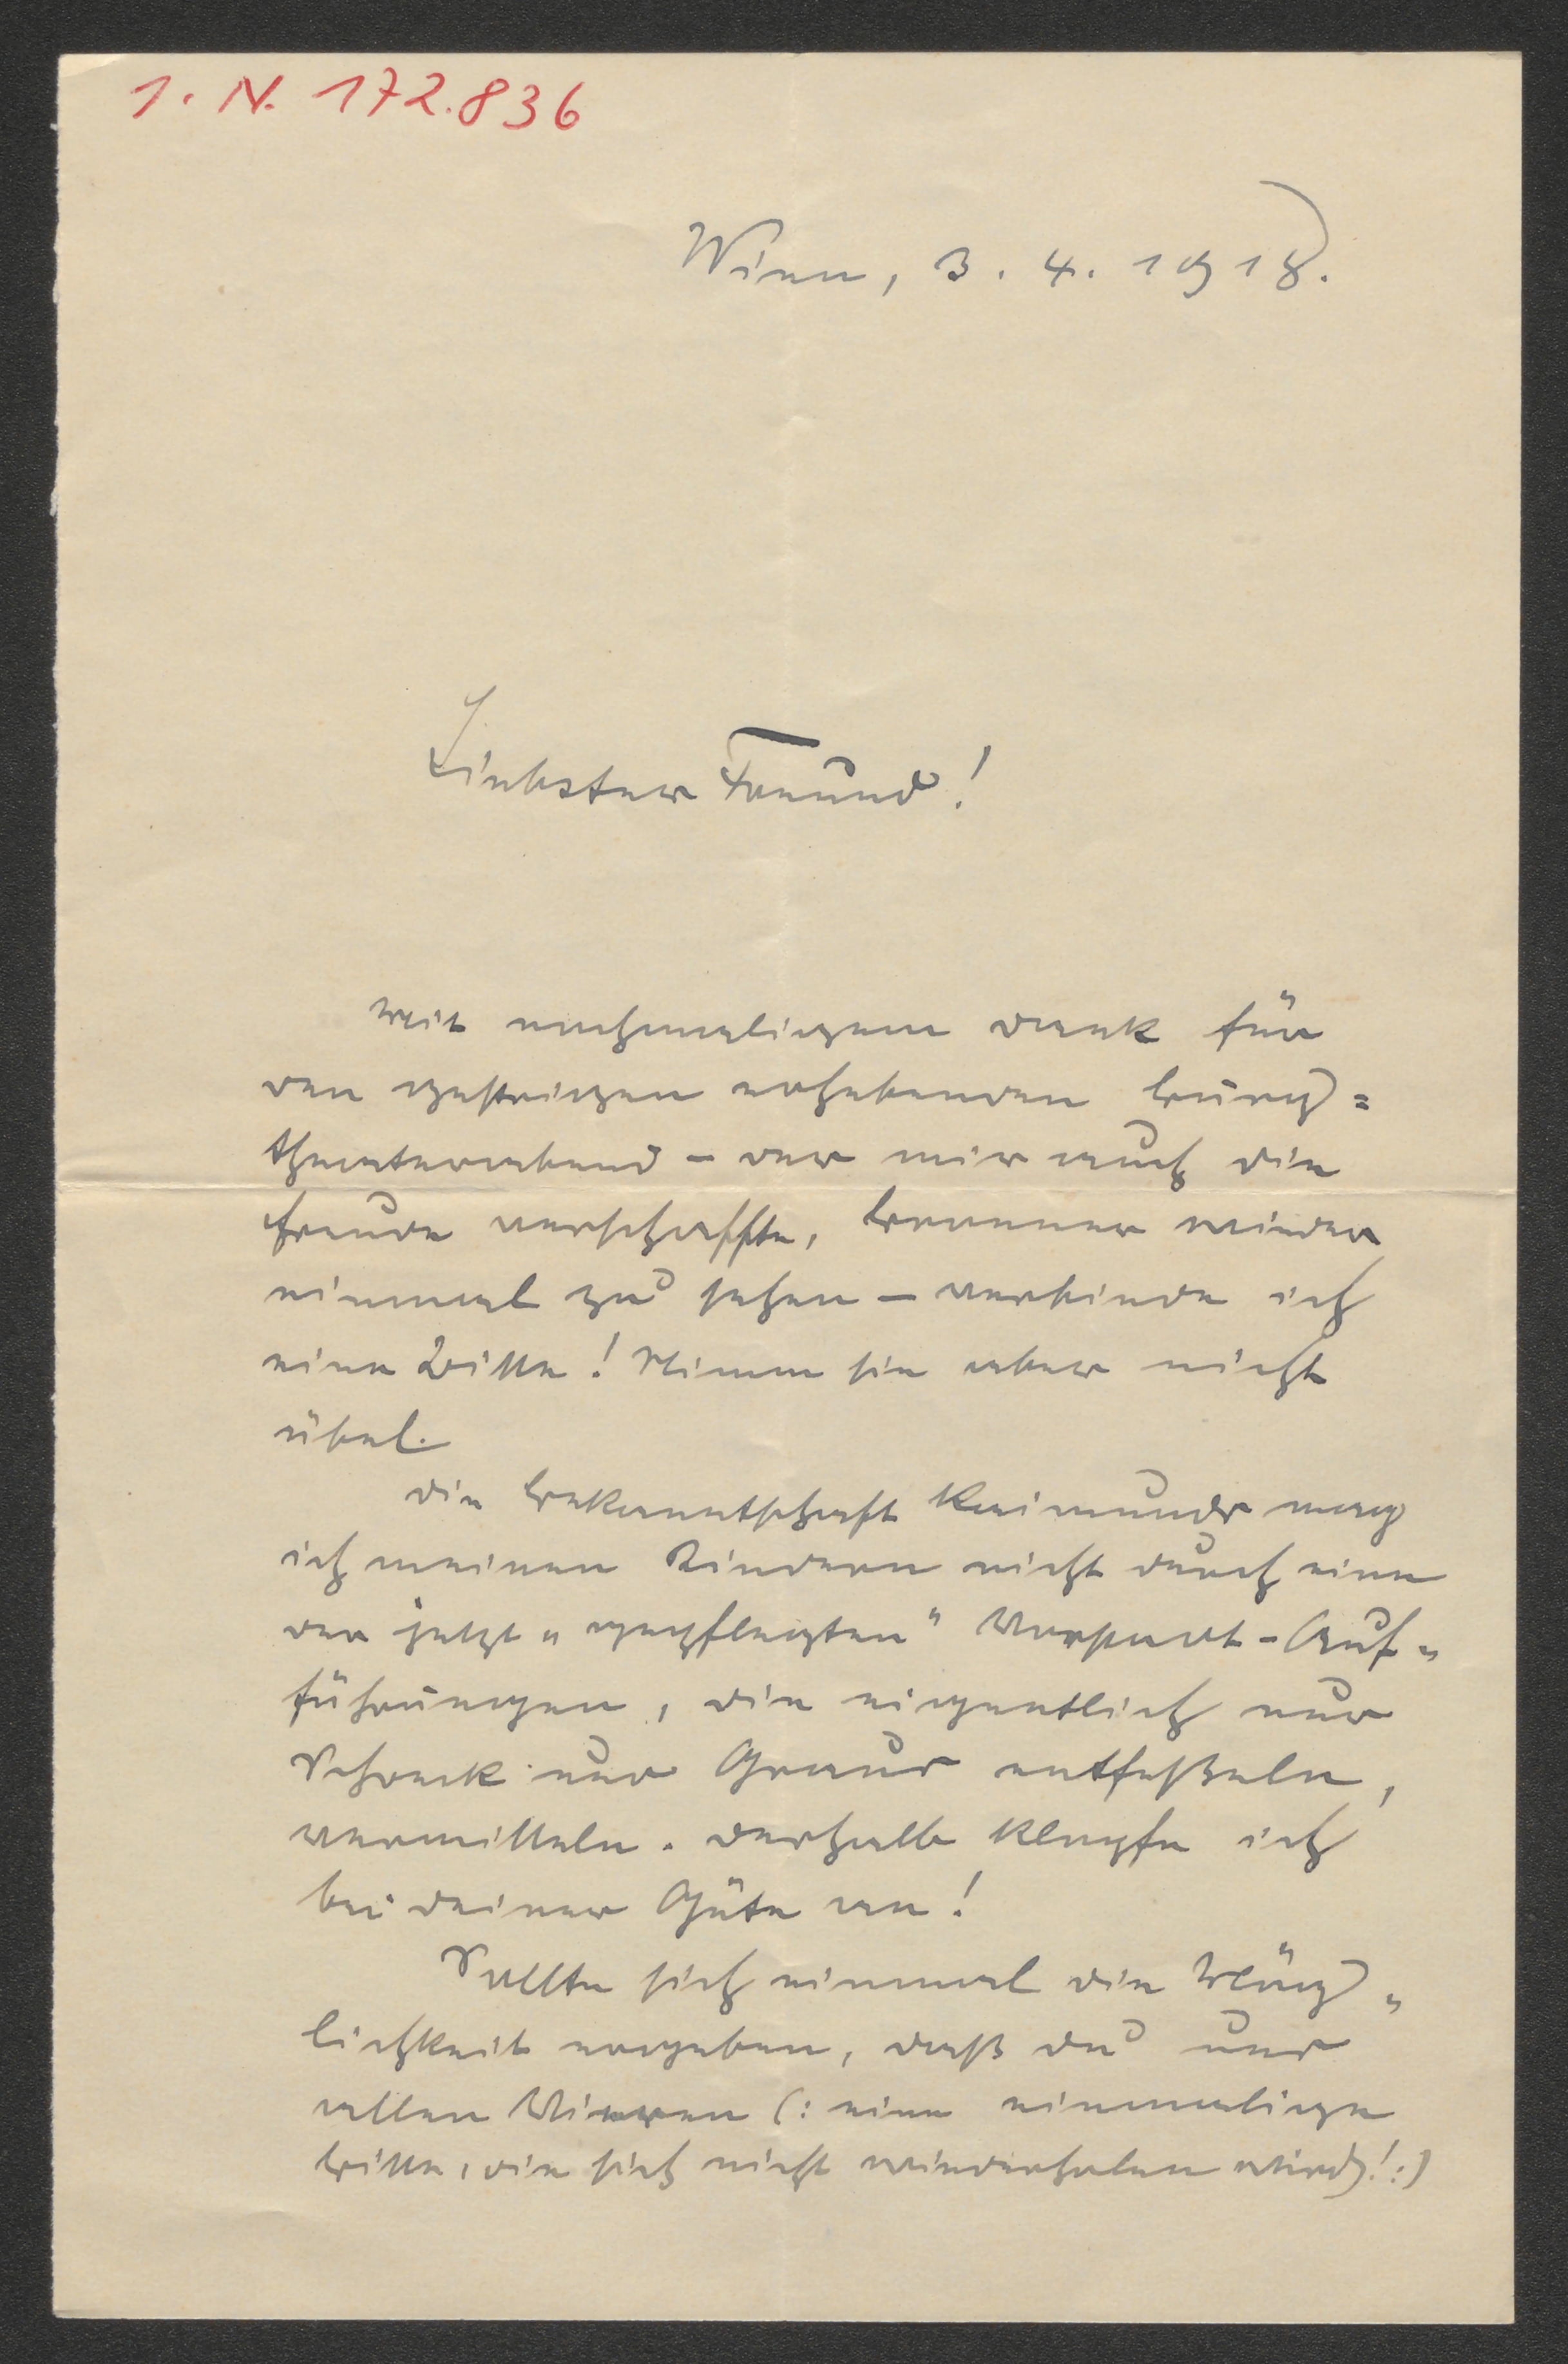 I. N. 172.836
Wien, 3. 4. 1918.
Liebster Freund!
Mit nochmaligem Dank für
den gestrigen erhebenden Burg=
theaterabend – der mir auch die
Freude verschaffte, Brenner wieder
einmal zu sehen – verbinde ich
eine Bitte! Nimm sie aber nicht
übel.
Die Bekanntschaft Raimunds mag
ich meinen Kindern nicht durch eine
der jetzt „gepflegten" Vorstadt-Auf„
führungen, die eigentlich nur
Schreck und Graus entfeßeln,
vermitteln. Deshalb klopfe ich
bei Deiner Güte an!
Sollte sich einmal die Mög„
lichkeit ergeben, daß Du uns
allen Vieren (: eine einmalige
Bitte, die sich nicht wiederholen wird!:)